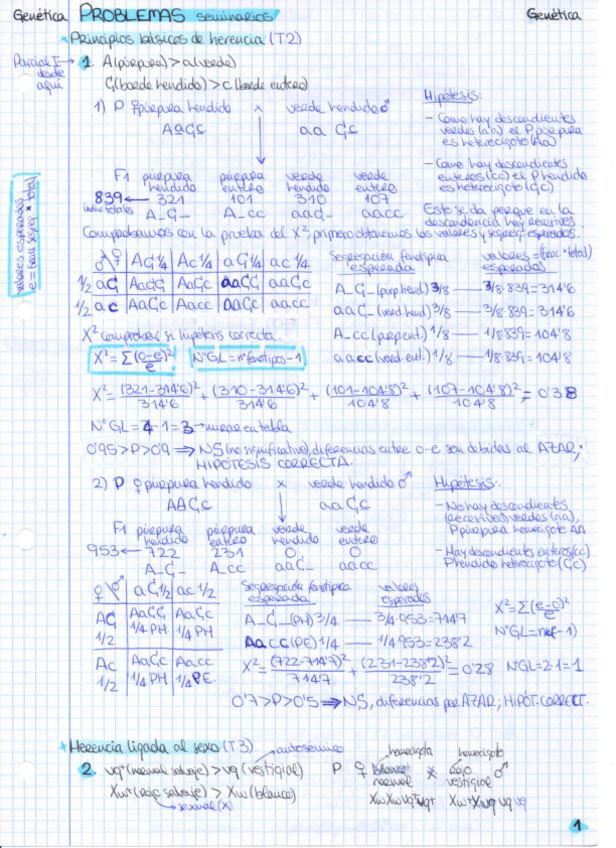 Genética PROBLEMAS seminarios Genética
* Principios básicos de herencia (T2)
Parcial I desde aquí → 1. A(púrpura) > a(verde)
C(borde hendido) > c(borde entero)
1) P ♀púrpura hendido x verde hendido♂
AaCc aa Cc
Hipótesis:
- Como hay descendientes verdes (aa) el P púrpura es heterocigote (Aa)
- Como hay descendientes enteros (cc) el P hendido es heterocigote (Cc)
Este se da porque en la descendencia hay recesivos
F1 púrpura hendido púrpura entero verde hendido verde entero
839 ← 321 101 310 107
indiv. totales A_C_ A_cc aaC_ aacc
Comprobamos con la prueba del X², primero obtenemos los valores y segreg. esperados.
valores esperados
e = frec segreg * total
♂\♀ AC 1/4 Ac 1/4 aC 1/4 ac 1/4
1/2 aC AaCC AaCc aaCC aaCc
1/2 ac AaCc Aacc aaCc aacc
Segregación fenotípica esperada valores esperados = (frec * total)
A_C_ (purp hend) 3/8 — 3/8·839=314'6
aaC_ (verd hend) 3/8 — 3/8·839=314'6
A_cc (purp ent.) 1/8 — 1/8·839=104'8
aacc (verd ent.) 1/8 — 1/8·839=104'8
X² comprobar si hipótesis correcta.
X²=Σ(o-e)²/e NºGL=nº fenotipos-1
X²= (321-314'6)²/314'6 + (310-314'6)²/314'6 + (101-104'8)²/104'8 + (107-104'8)²/104'8 = 0'38
NºGL=4-1=3 → mirar en tabla
0'95>P>0'9 ⇒ NS (no significativo), diferencias entre o-e son debidas al AZAR; HIPÓTESIS CORRECTA.
2) P ♀púrpura hendido x verde hendido ♂
AACc aaCc
Hipótesis:
- No hay descendientes (recesivos) verdes (aa), P púrpura homocigote AA
- Hay descendientes enteros (cc) P hendido heterocigote (Cc)
F1 púrpura hendido púrpura entero verde hendido verde entero
953 ← 722 231 0 0
A_C_ A_cc aaC_ aacc
♀\♂ aC 1/2 ac 1/2
AC 1/2 AaCC 1/4 PH AaCc 1/4 PH
Ac 1/2 AaCc 1/4 PH Aacc 1/4 PE.
Segregación fenotípica esperada valores esperados
A_C_ (PH) 3/4 — 3/4·953=714'7
Aacc (PE) 1/4 — 1/4·953=238'2
X²=Σ(e-o)²/e
X²= (722-714'7)²/714'7 + (231-238'2)²/238'2 = 0'28 NºGL=2-1=1
0'7>P>0'5 ⇒ NS, diferencias por AZAR; HIPÓT. CORRECT.
* Herencia ligada al sexo (T3)
autosómico
2. vg⁺(normal salvaje) > vg (vestigial)
Xw⁺(rojo salvaje) > Xw (blanco)
sexual (X)
P ♀ normal x rojo vestigial ♂
1